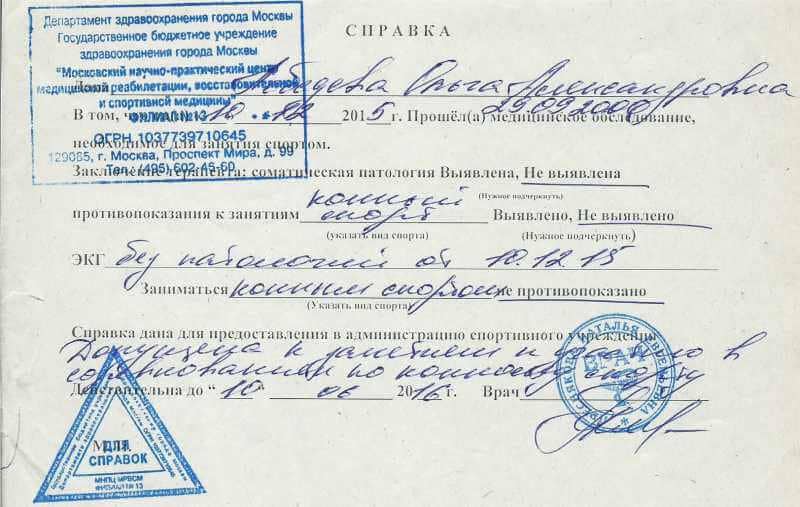 Департамент здравоохранения города Москвы
Государственное бюджетное учреждение
здравоохранения города Москвы
"Московский научно-практический центр
медицинской реабилитации, восстановительной
и спортивной медицины"
ФИЛИАЛ №13
ОГРН 1037739710645
129085, г. Москва, Проспект Мира, д. 99
Тел. (495) 602-45-50
СПРАВКА
Ольга Александровна
29 09 2000
В том, 10 12 2015 г. Прошёл(а) медицинское обследование,
необходимое для занятия спортом.
Заключение терапевта: соматическая патология Выявлена, Не выявлена
(Нужное подчеркнуть)
конный
противопоказания к занятиям спорт Выявлено, Не выявлено
(указать вид спорта) (Нужное подчеркнуть)
ЭКГ без патологий от 10.12.15
Заниматься конным спортом не противопоказано
(Указать вид спорта)
Справка дана для предоставления в администрацию спортивного учреждения
Допущена к занятиям и участию в
соревнованиям по конному спорту
Действительна до "10" 06 2016 г. Врач
НАТАЛЬЯ
ВРАЧ
М.П.
ДЛЯ
СПРАВОК
МНПЦ МРВСМ
ФИЛИАЛ №13